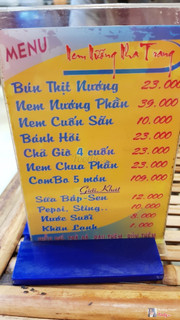 MENU
Nem Nướng Nha Trang
Bún Thịt Nướng 23.000
Nem Nướng Phần 39.000
Nem Cuốn Sẵn 10.000
Bánh Hỏi 23.000
Chả Giò 4 cuốn 23.000
Nem Chua Phần 23.000
ComBo 5 món 109.000
Giải Khát
Sữa Bắp-Sen 12.000
Pepsi, Sting.. 10.000
Nước Suối 8.000
Khăn Lạnh 1.000